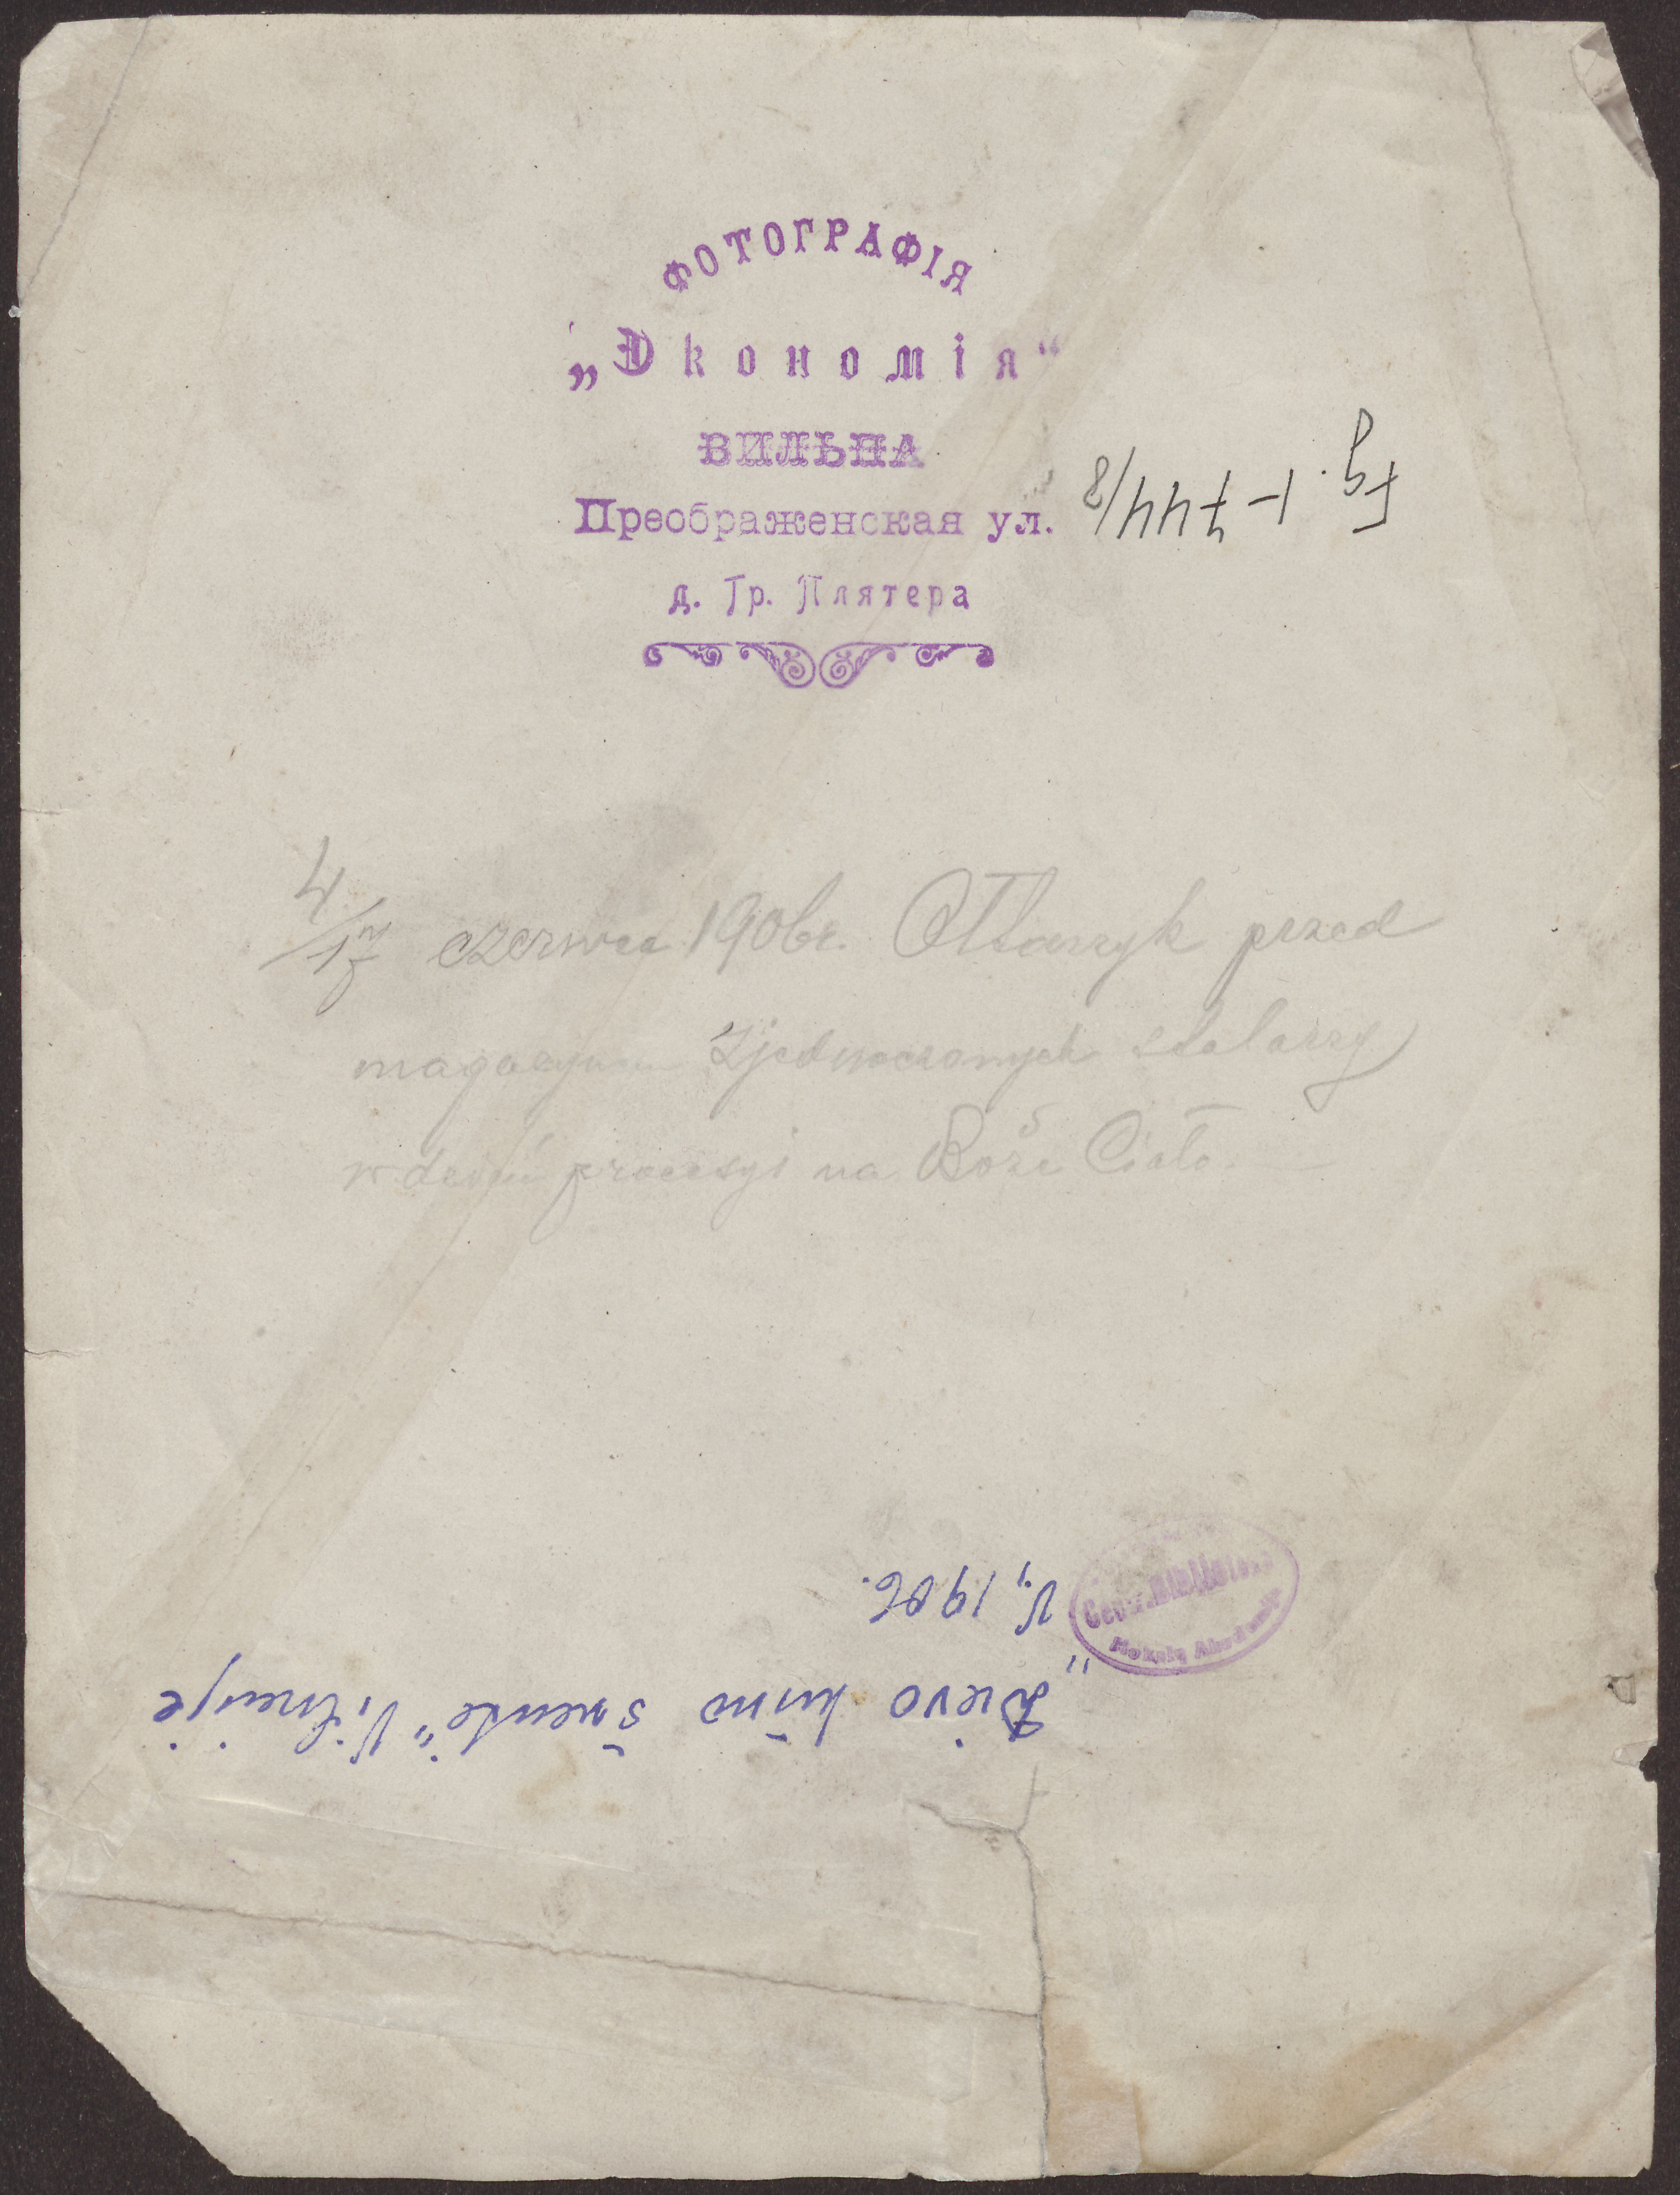 ФОТОГРАФІЯ
„Экономія“
ВИЛЬНА
Преображенская ул.
д. Гр. Плятера
Fg. 1-744/8
4/17 czerwca 1906 r. Ołtarzyk przed
magazynem Zjednoczonych stolarzy
w dzień procesyi na Boże Ciało.
„Dievo kūno šventė“ Vilniuje
V, 1906.
Centr. Biblioteka
Mokslų Akademija